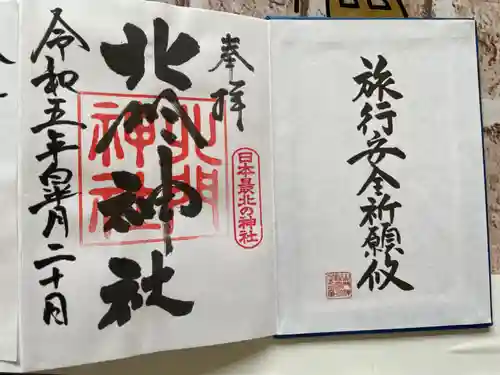 旅行安全祈願攸
奉拝
日本最北の神社
北門神社
北門
神社
令和五年皐月二十日